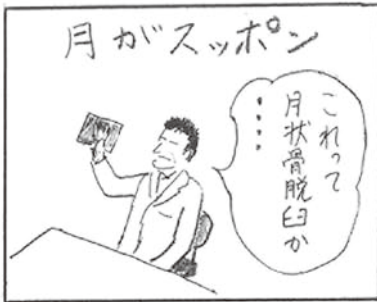 月がスッポン
これって
月状骨脱臼か
・・・・